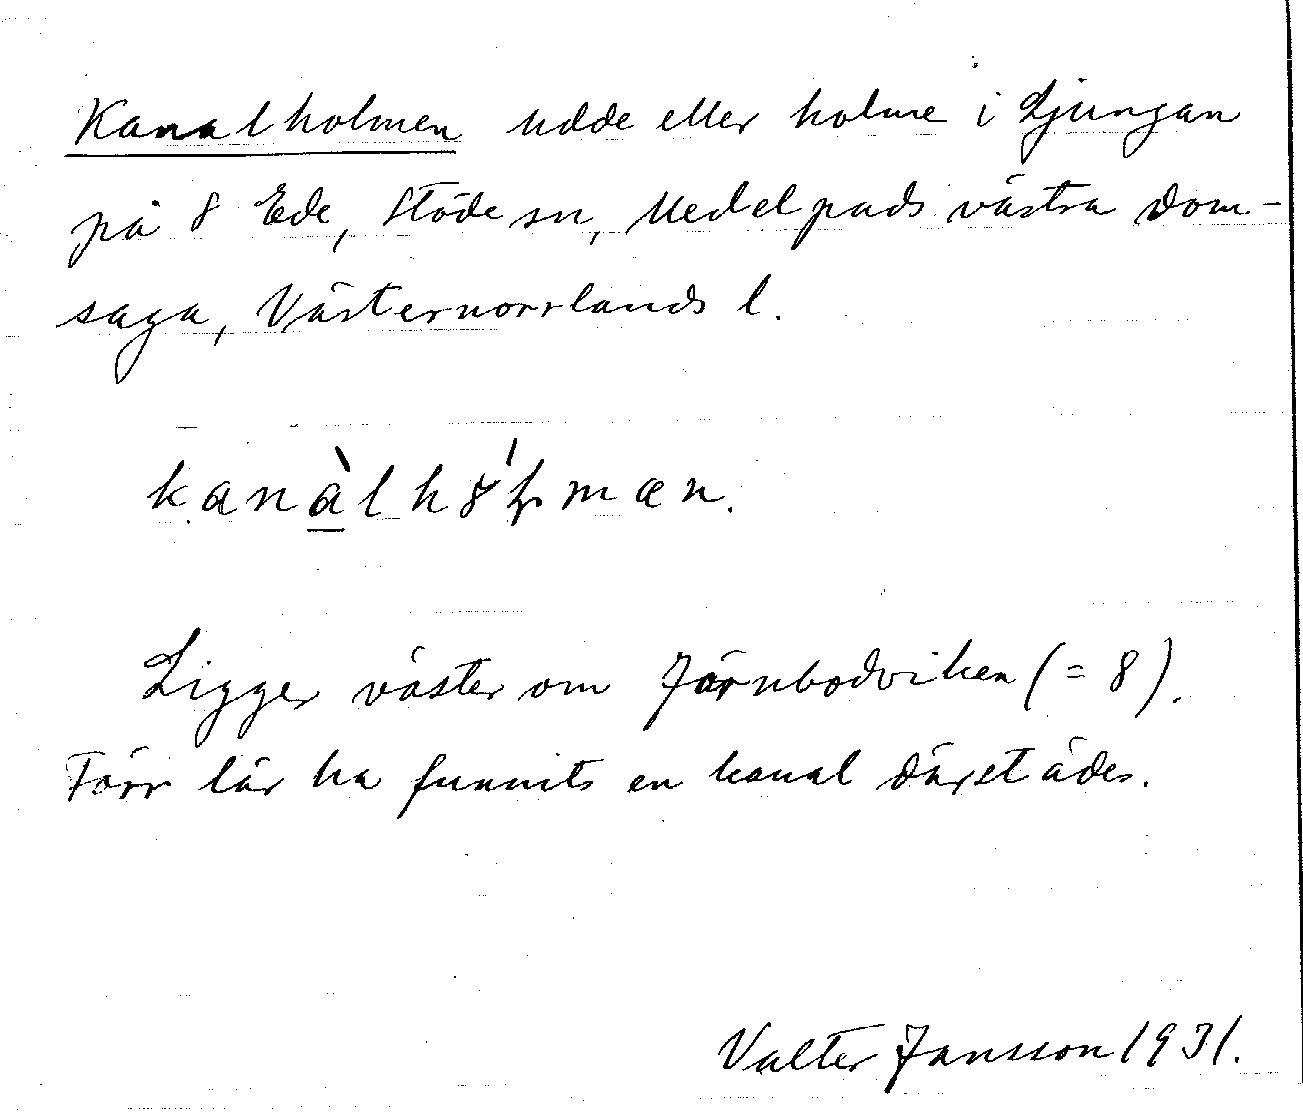 Kanalholmen udde eller holme i Ljungan
på 8 Ede, Stöde sn, Medelpads västra dom-
saga, Västernorrlands l.
kanàlhólman.
Ligger väster om Järnbodviken (= 8).
Förr lär ha funnits en kanal därstädes.
Valter Jansson 1931.